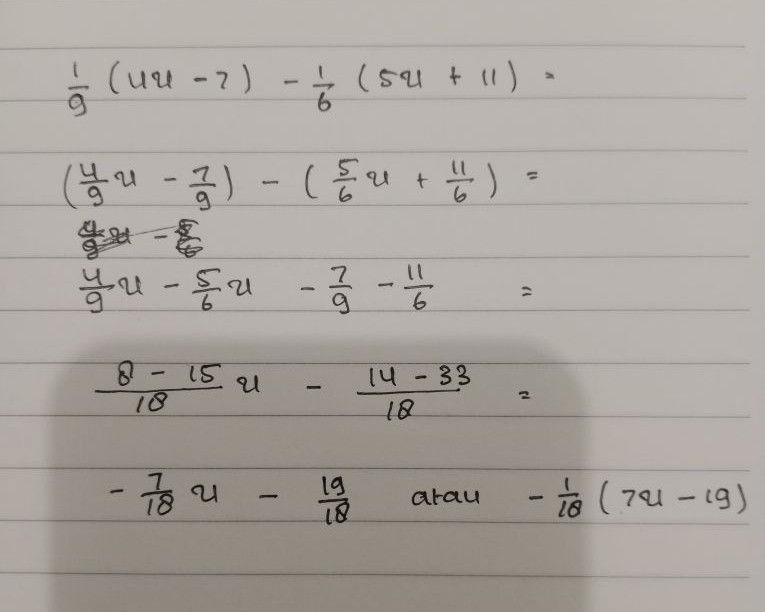 1/9 (4u - 7) - 1/6 (5u + 11) =
(4/9 u - 7/9) - (5/6 u + 11/6) =
4/9 u - 5/6
4/9 u - 5/6 u - 7/9 - 11/6 =
8 - 15/18 u - 14 - 33/18 =
- 7/18 u - 19/18 atau - 1/18 (7u - 19)